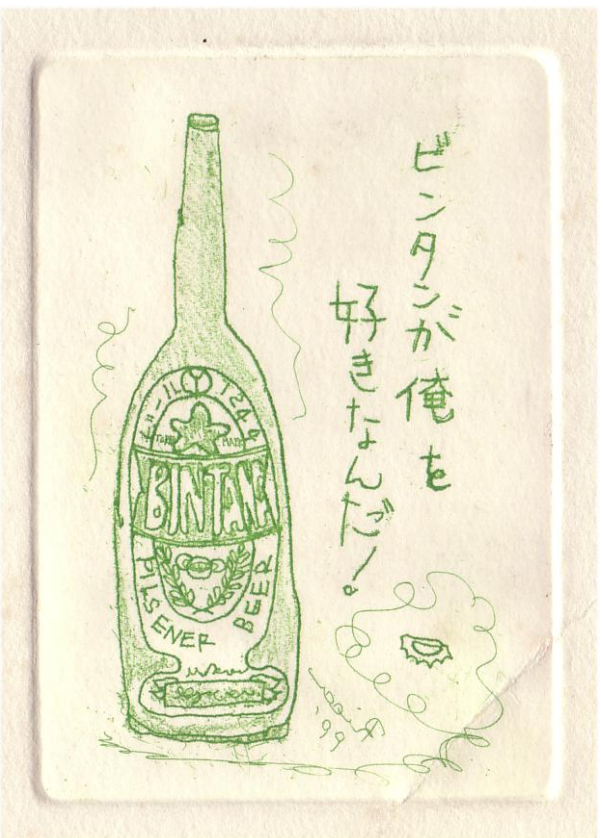 ビンタンが俺を
好きなんだ!
ビール
BINTANG
PILSENER BEER
'99